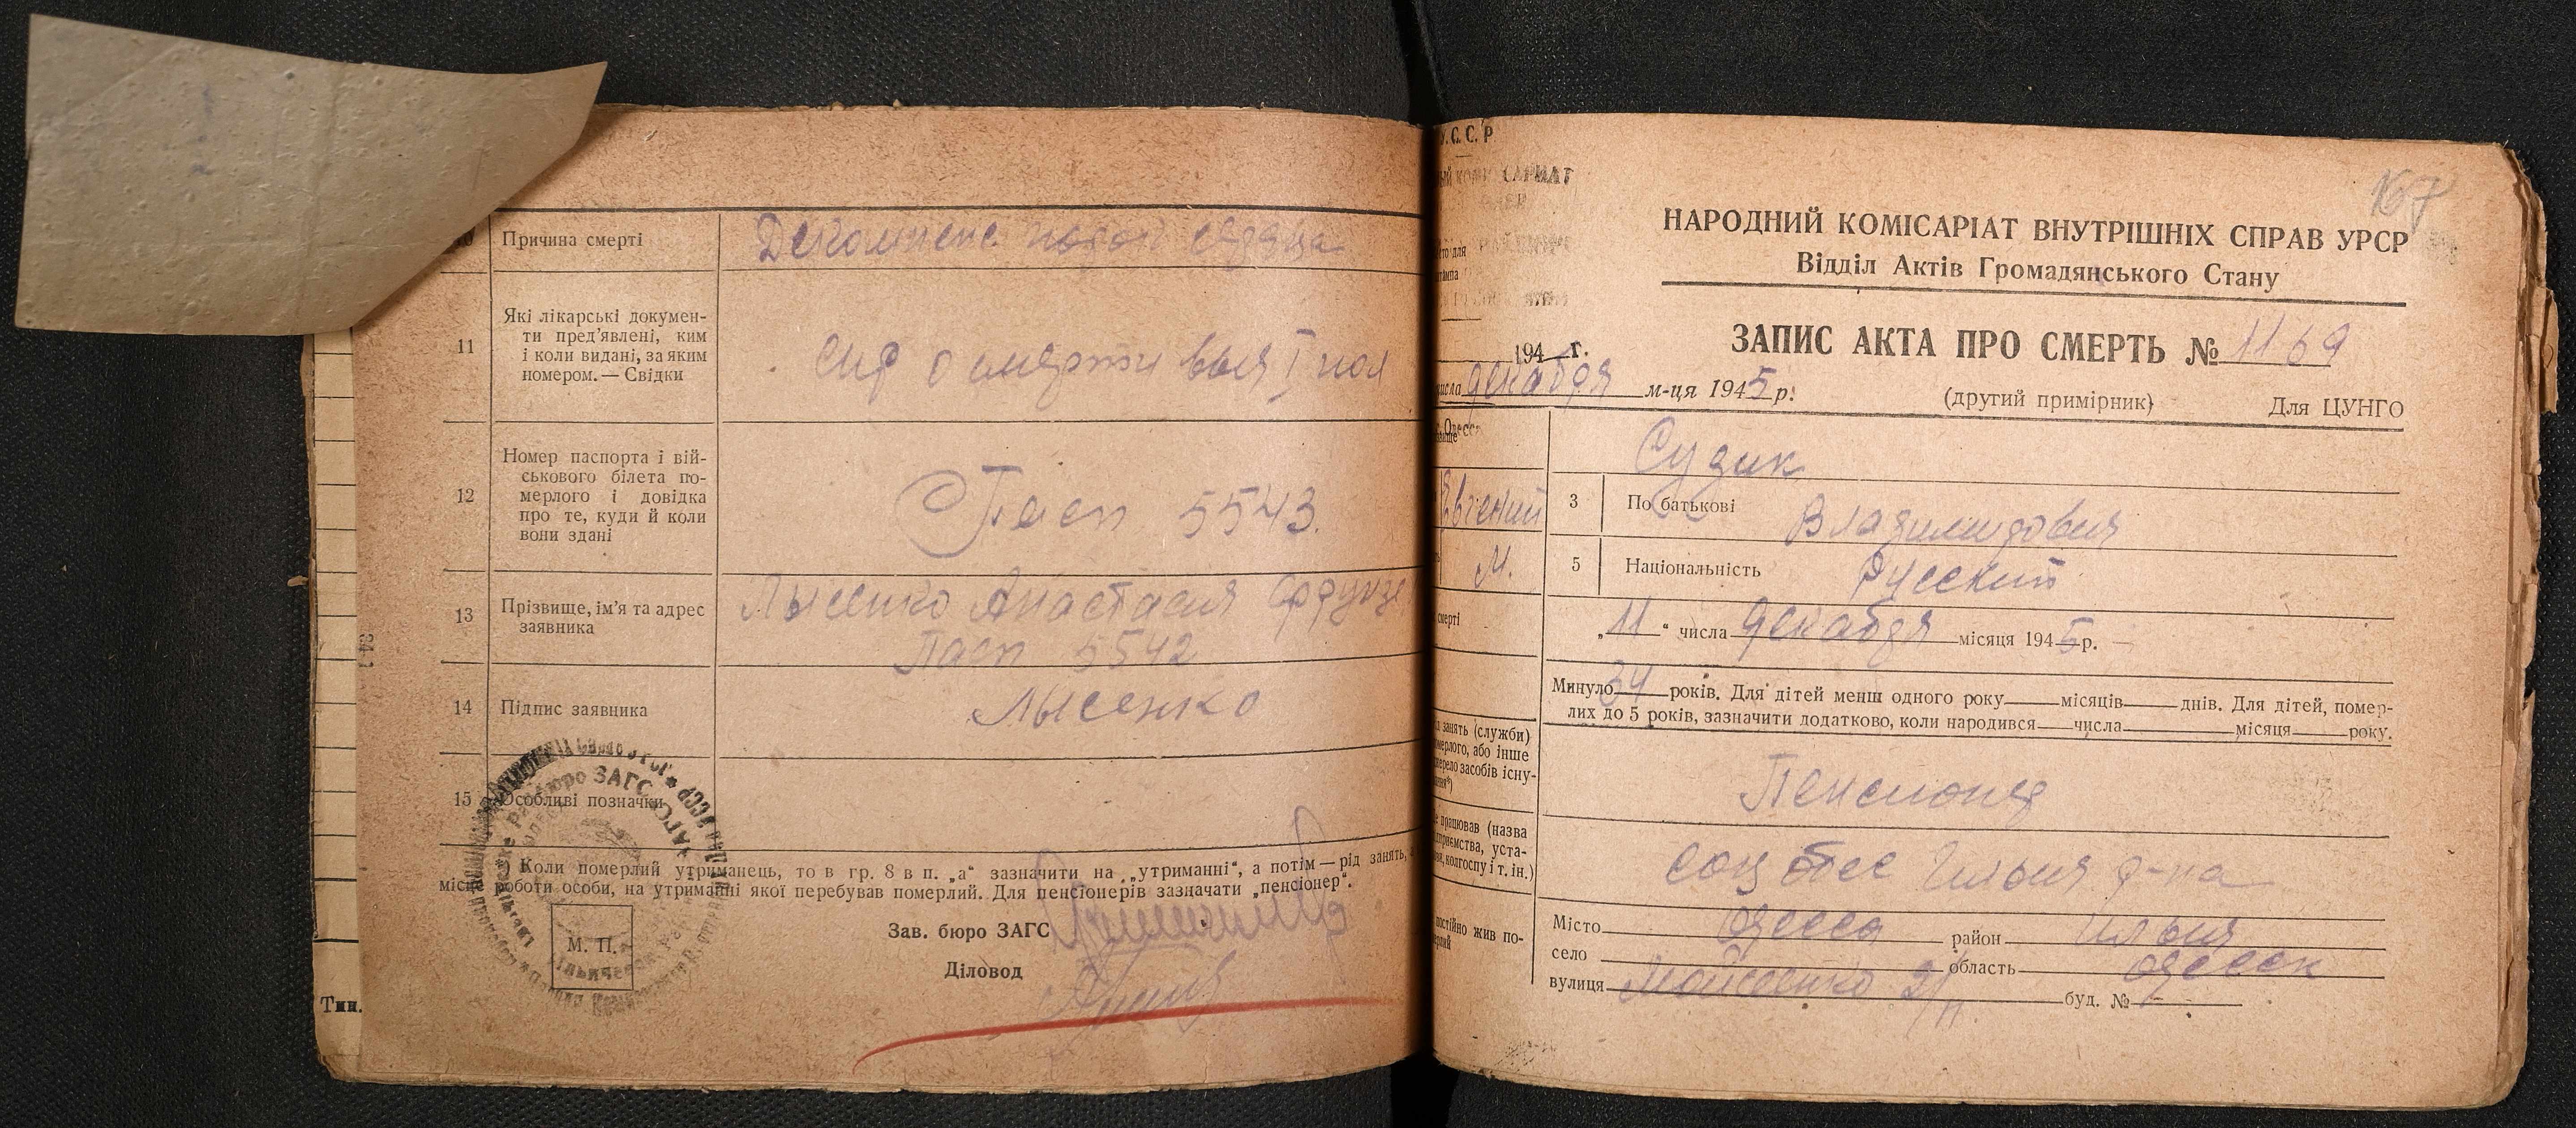 10 Причина смерті Декомпенс порок сердца
11 Які лікарські докумен-
ти пред'явлені, ким
і коли видані, за яким
номером. — Свідки
о смерти выд I пол
12 Номер паспорта і вій-
ськового білета по-
мерлого і довідка
про те, куди й коли
вони здані
Пасп 5543.
13 Прізвище, ім'я та адрес
заявника
Лысенко Анастасия
Пасп 5542
14 Підпис заявника Лысенко
15 Особливі позначки
Коли померлий утриманець, то в гр. 8 в п. „а" зазначити на „утриманні", а потім — рід занять,
місце роботи особи, на утриманні якої перебував померлий. Для пенсіонерів зазначати „пенсіонер".
Зав. бюро ЗАГС
Діловод
М. П.
бюро ЗАГС
Тип.
У.С.С.Р
194 г.
167
НАРОДНИЙ КОМІСАРІАТ ВНУТРІШНІХ СПРАВ УРСР
Відділ Актів Громадянського Стану
ЗАПИС АКТА ПРО СМЕРТЬ № 1169
числа декабря м-ця 1945 р.
(другий примірник) Для ЦУНГО
Судик
Евгений
3 По батькові Владимирович
М.
5 Національність Русский
смерті
„11" числа декабря місяця 1945 р.
Минуло 34 років. Для дітей менш одного року місяців днів. Для дітей, помер-
лих до 5 років, зазначити додатково, коли народився числа місяця року.
занять (служби)
померлого, або інше
джерело засобів існу-
вання*)
Пенсионер
працював (назва
підприємства, уста-
нови, колгоспу і т. ін.)
соц обес Ильич р-на
постійно жив по-
мерлий
Місто Одесса район Ильич
село область Одесск
вулиця Мойсеенко 2/11 буд. №